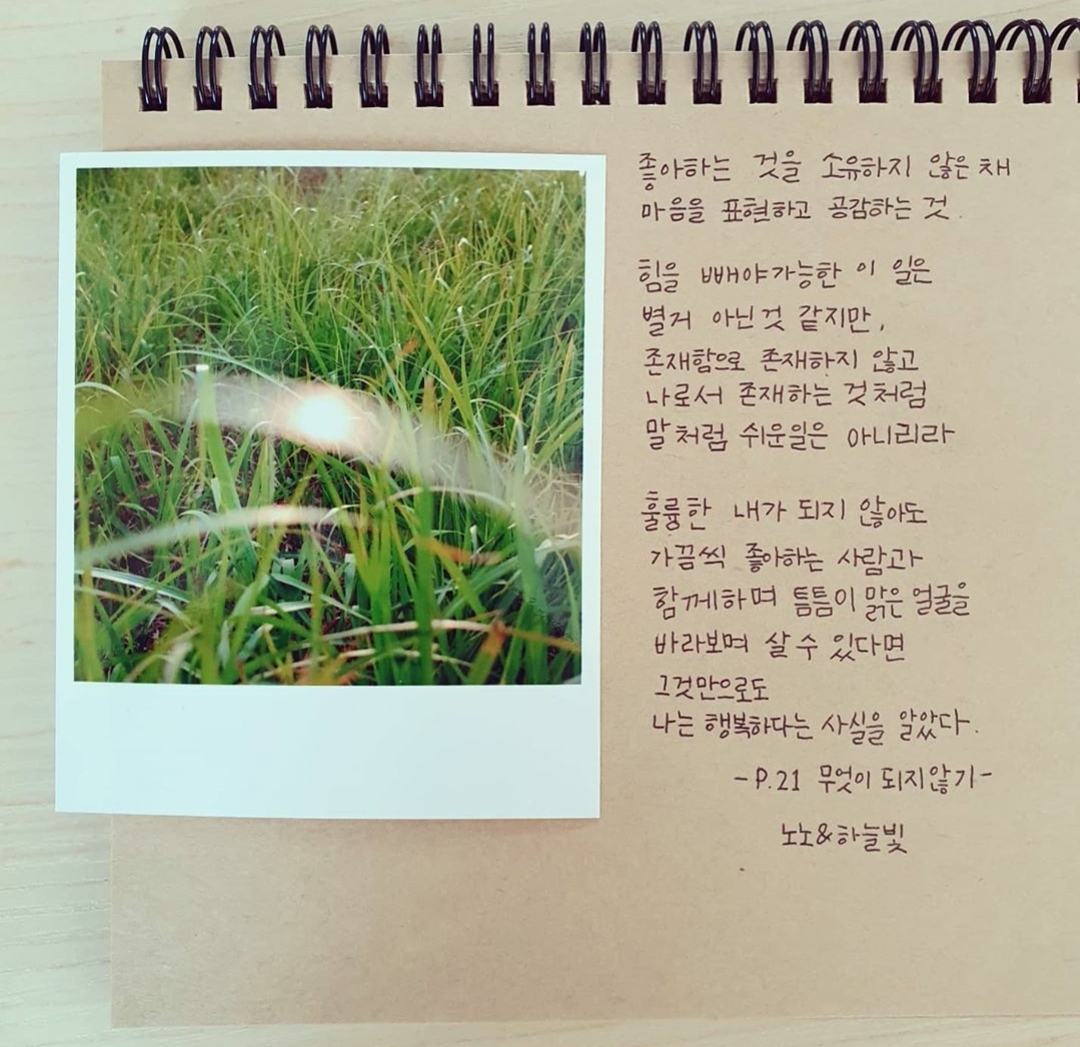 좋아하는 것을 소유하지 않은 채
마음을 표현하고 공감하는 것.
힘을 빼야가능한 이 일은
별거 아닌것 같지만,
존재함으로 존재하지 않고
나로서 존재하는 것처럼
말처럼 쉬운일은 아니리라
훌륭한 내가 되지 않아도
가끔씩 좋아하는 사람과
함께하며 틈틈이 맑은 얼굴을
바라보며 살 수 있다면
그것만으로도
나는 행복하다는 사실을 알았다.
-P.21 무엇이 되지않기-
노노&하늘빛